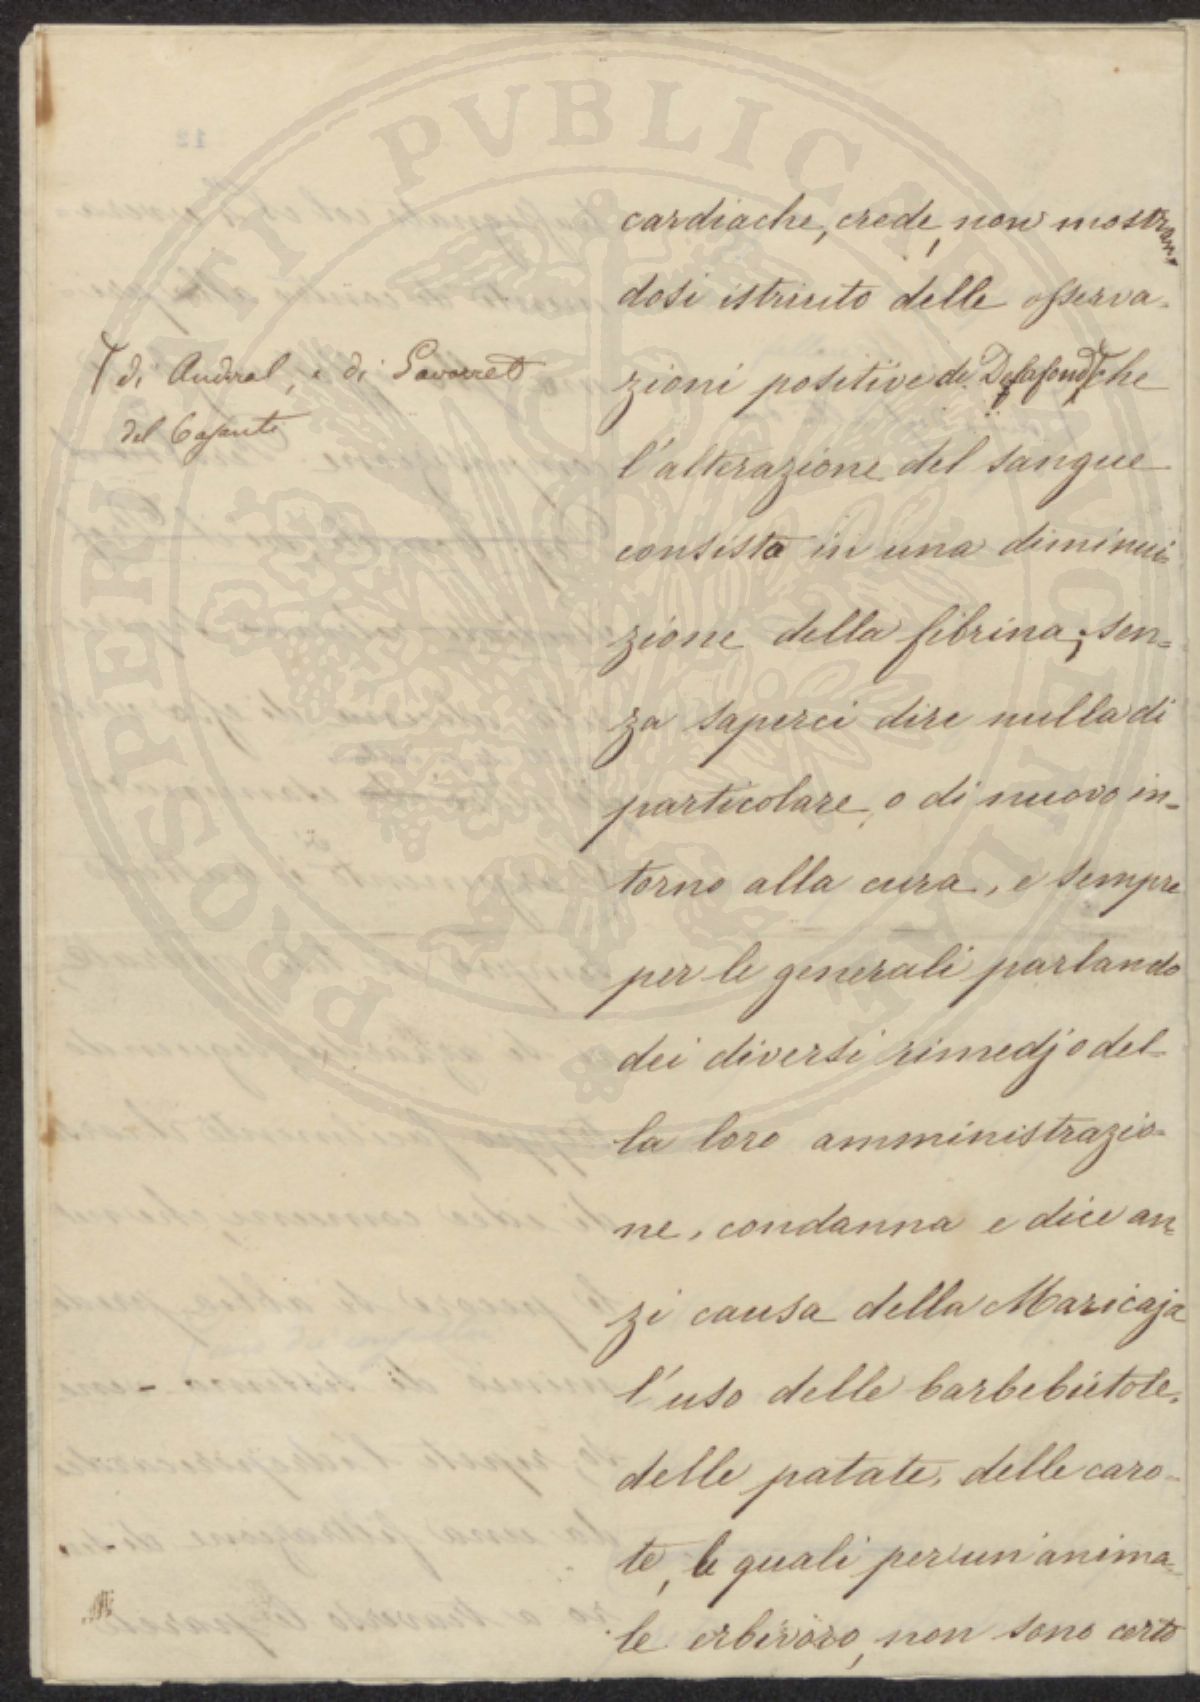 cardiache, crede, non mostran
dosi istruito delle osserva-
zioni positive di Delafond che
l'alterazione del sangue
consista in una diminui
zione della fibrina; sen=
za saperci dire nulla di
particolare, o di nuovo in=
torno alla cura, e sempre
per le generali parlando
dei diversi rimedj o del-
la loro amministrazio-
ne, condanna e dice an=
zi causa della Maricaja
l'uso delle barbebietole,
delle patate, delle caro-
te, le quali per un anima-
le erbivoro, non sono certo
di Andral, e di Gavarret
del
PROSPERITATI PVBLICAE AVGENDAE